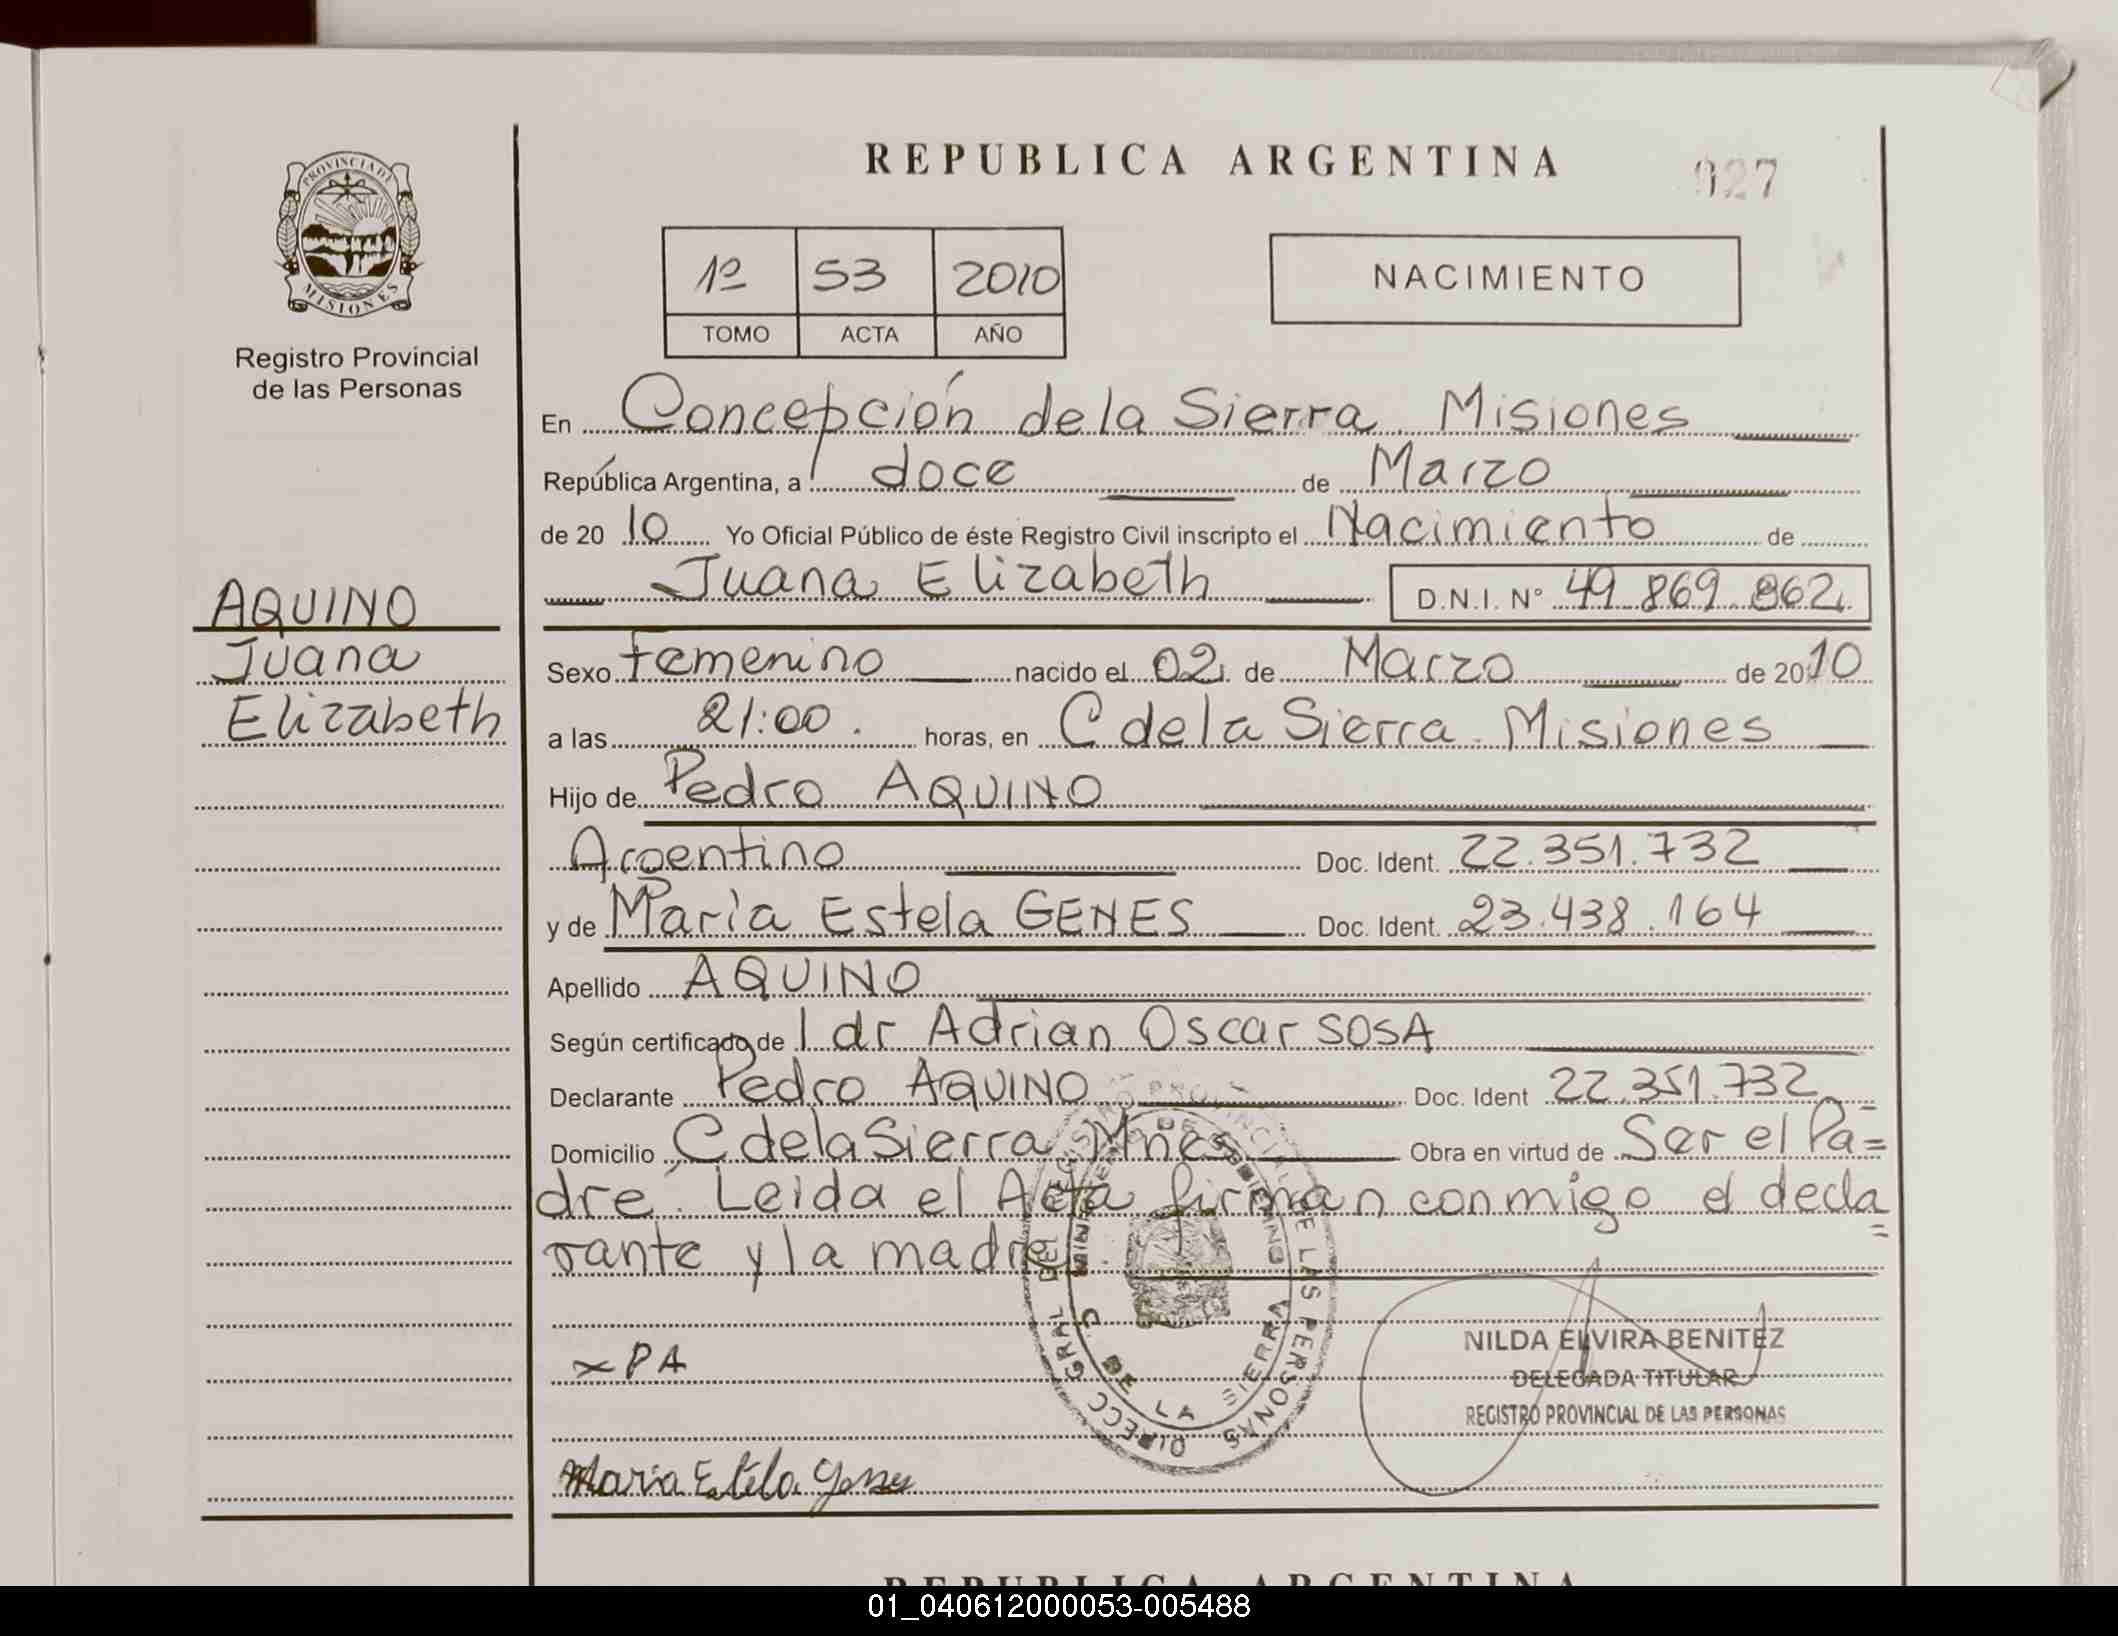 REPUBLICA ARGENTINA
027
PROVINCIA DE
MISIONES
Registro Provincial
de las Personas
1º 53 2010
TOMO ACTA AÑO
NACIMIENTO
En Concepción de la Sierra. Misiones
República Argentina, a doce de Marzo
de 2010 Yo Oficial Público de éste Registro Civil inscripto el Nacimiento de
Juana Elizabeth D.N.I. N° 49.869.862
AQUINO
Juana
Elizabeth
Sexo femenino nacido el 02 de Marzo de 2010
a las 21:00. horas, en C de la Sierra. Misiones
Hijo de Pedro AQUINO
Argentino Doc. Ident. 22.351.732
y de María Estela GENES Doc. Ident. 23.438.164
Apellido AQUINO
Según certificado de l dr Adrian Oscar SOSA
Declarante Pedro AQUINO Doc. Ident 22.351.732
Domicilio C de la Sierra Mnes Obra en virtud de Ser el Pa=
dre. Leida el Acta firman conmigo el decla
=
rante y la madre.
DIRECC GRAL DEL REGISTRO PROVINCIAL DE LAS PERSONAS
C. DE LA SIERRA
x PA
NILDA ELVIRA BENITEZ
DELEGADA TITULAR
REGISTRO PROVINCIAL DE LAS PERSONAS
Maria Estela Genes
REPUBLICA ARGENTINA
01_040612000053-005488